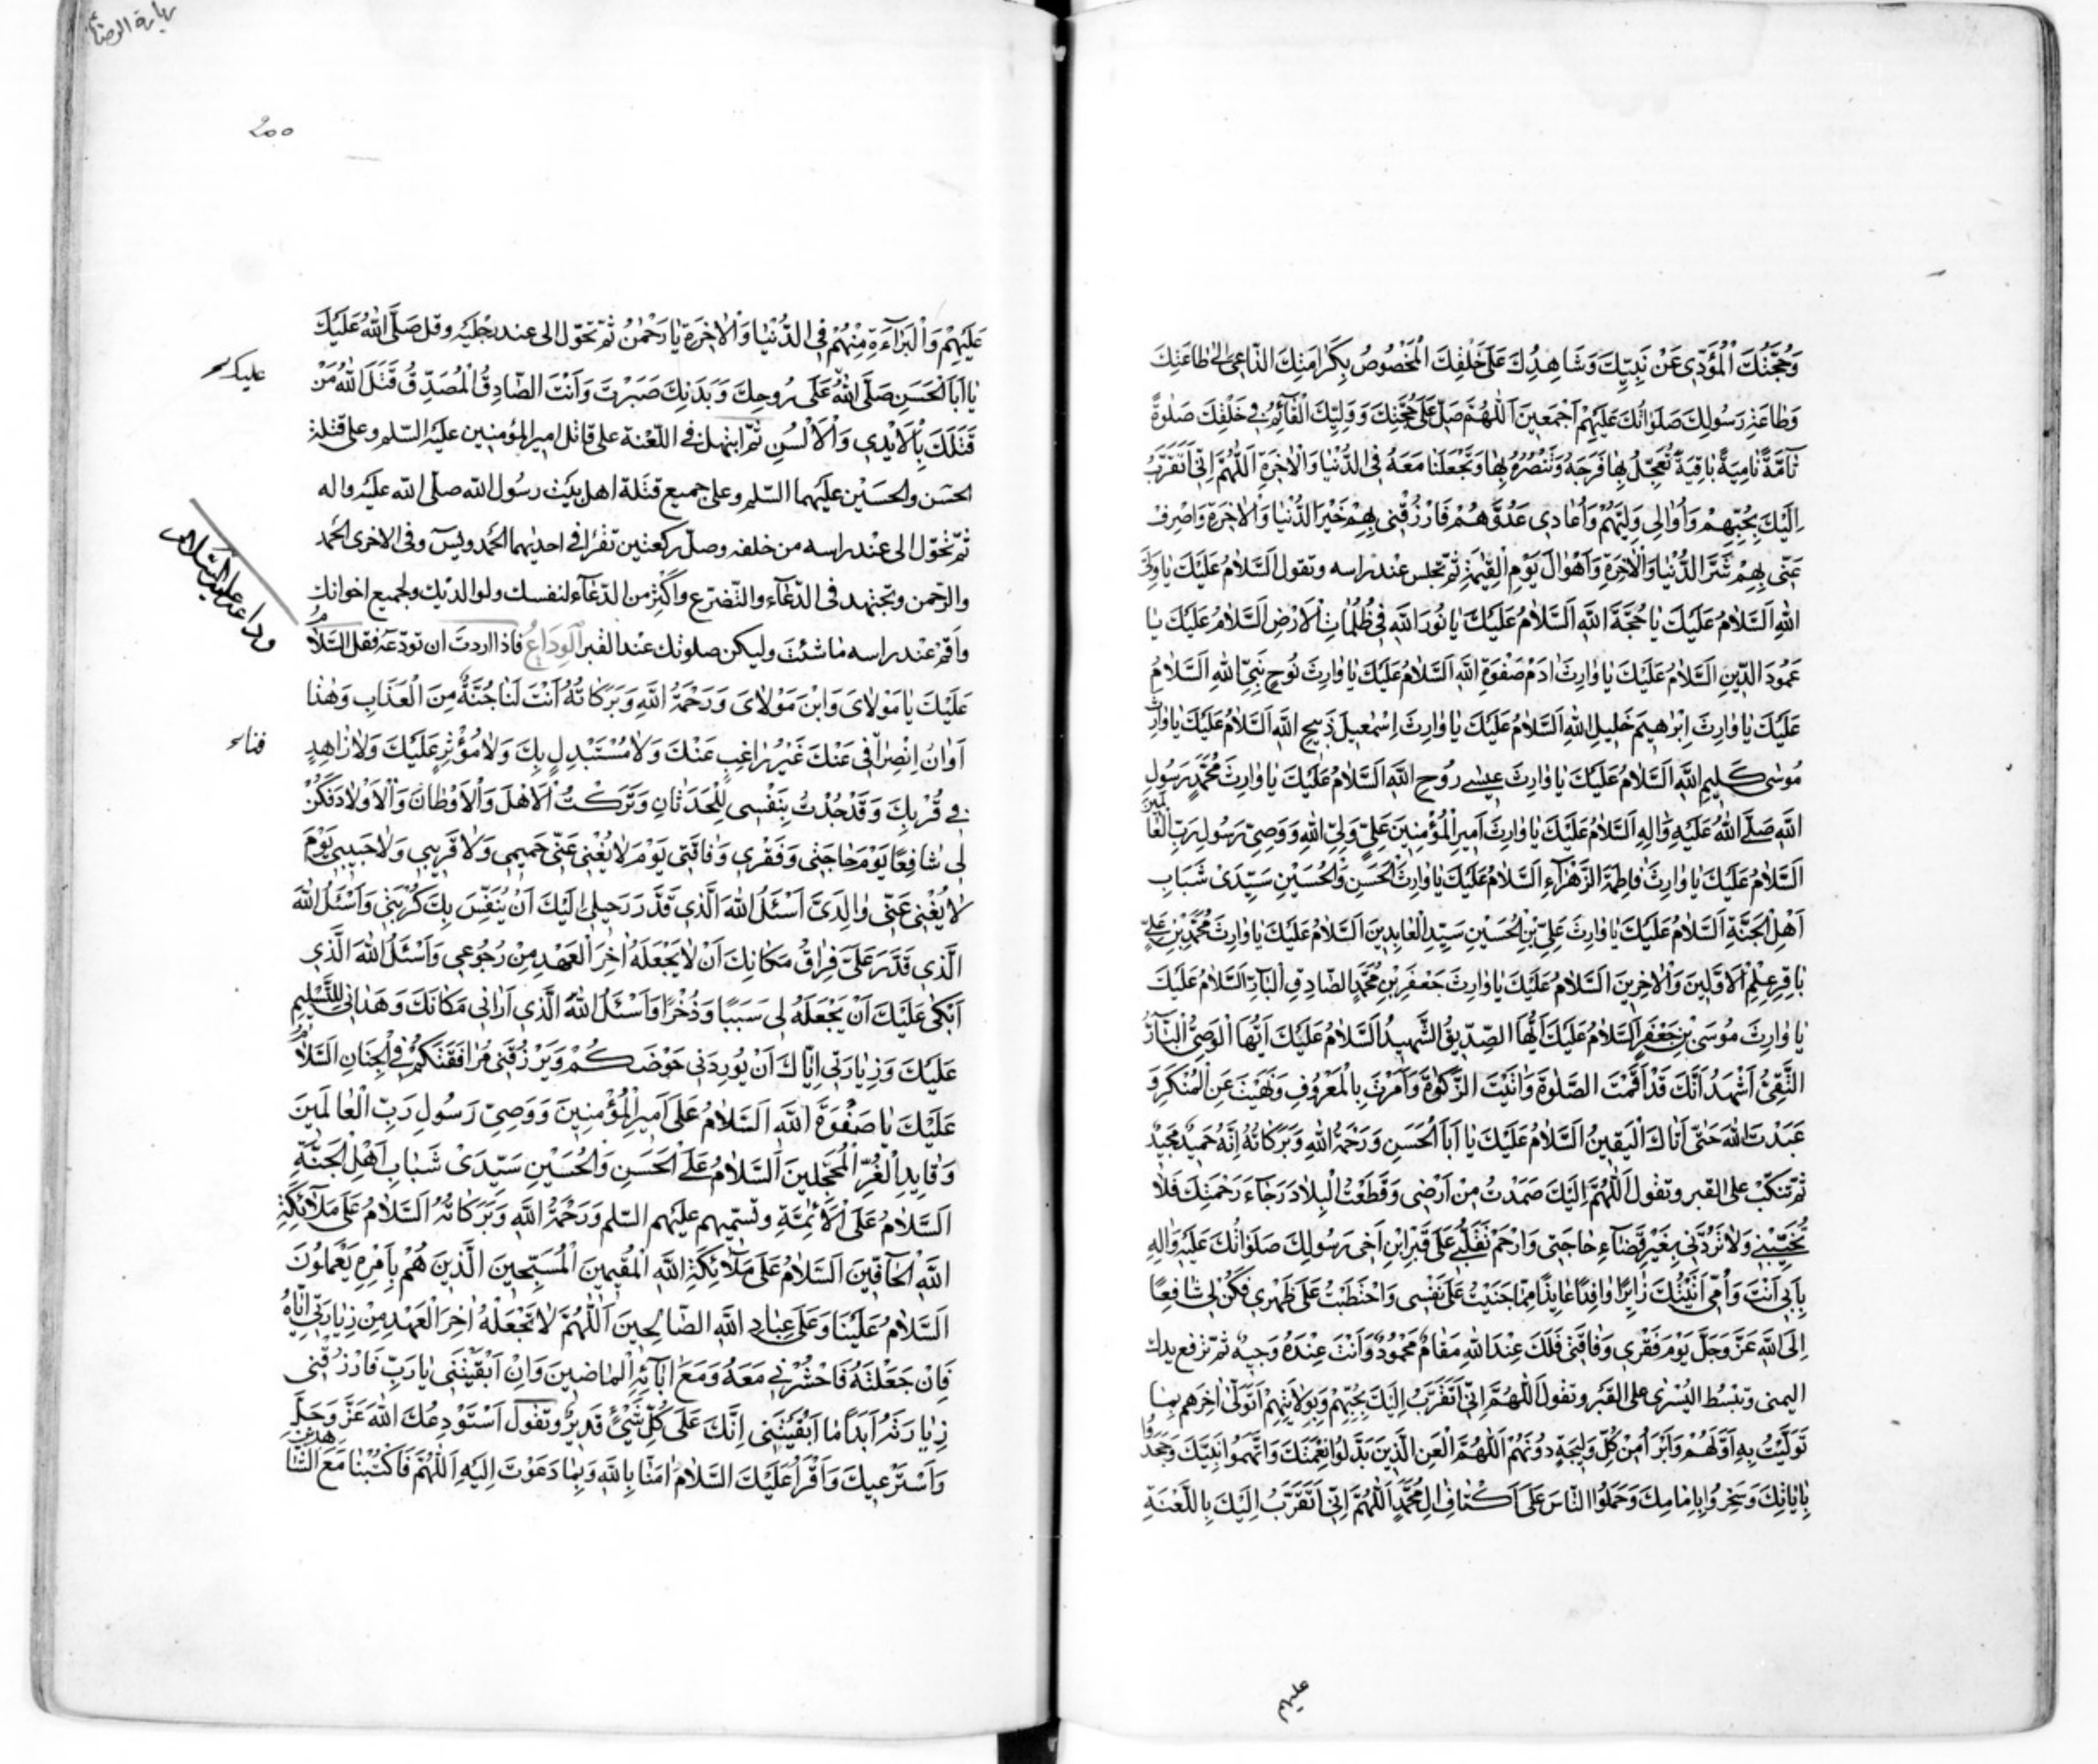 وَحُجَّتِكَ الْمُؤَدّى عَنْ نَبِيِّكَ وَشَاهِدِكَ عَلَى خَلْقِكَ الْمَخْصُوصِ بِكَرَامَتِكَ الدَّاعِى اِلىٰ طَاعَتِكَ
وَطَاعَةِ رَسُولِكَ صَلَوَاتُكَ عَلَيْهِمْ اَجْمَعِينَ اَللّٰهُمَّ صَلِّ عَلَى حُجَّتِكَ وَوَلِيِّكَ الْقَآئِمِ فِى خَلْقِكَ صَلٰوةً
تَآمَّةً نَامِيَةً بَاقِيَةً تُعَجِّلُ بِهَا فَرَجَهُ وَتَنْصُرُهُ بِهَا وَتَجْعَلُنَا مَعَهُ فِى الدُّنْيَا وَالْاٰخِرَةِ اَللّٰهُمَّ اِنّى اَتَقَرَّبُ
اِلَيْكَ بِحُبِّهِمْ وَاُوَالِى وَلِيَّهُمْ وَاُعَادِى عَدُوَّهُمْ فَارْزُقْنِى بِهِمْ خَيْرَ الدُّنْيَا وَالْاٰخِرَةِ وَاصْرِفْ
عَنّى بِهِمْ شَرَّ الدُّنْيَا وَالْاٰخِرَةِ وَاَهْوَالَ يَوْمِ الْقِيٰمَةِ ثمّ تجلس عند راسه وتقول اَلسَّلَامُ عَلَيْكَ يَا وَلِىَّ
اللهِ اَلسَّلَامُ عَلَيْكَ يَا حُجَّةَ اللهِ اَلسَّلَامُ عَلَيْكَ يَا نُورَ اللهِ فِى ظُلُمَاتِ الْاَرْضِ اَلسَّلَامُ عَلَيْكَ يَا
عَمُودَ الدِّينِ اَلسَّلَامُ عَلَيْكَ يَا وَارِثَ اٰدَمَ صَفْوَةِ اللهِ اَلسَّلَامُ عَلَيْكَ يَا وَارِثَ نُوحٍ نَبِىِّ اللهِ اَلسَّلَامُ
عَلَيْكَ يَا وَارِثَ اِبْرٰهِيمَ خَلِيلِ اللهِ اَلسَّلَامُ عَلَيْكَ يَا وَارِثَ اِسْمٰعِيلَ ذَبِيحِ اللهِ اَلسَّلَامُ عَلَيْكَ يَا وَارِثَ
مُوسٰى كَلِيمِ اللهِ اَلسَّلَامُ عَلَيْكَ يَا وَارِثَ عِيسٰى رُوحِ اللهِ اَلسَّلَامُ عَلَيْكَ يَا وَارِثَ مُحَمَّدٍ رَسُولِ
اللهِ صَلَّى اللهُ عَلَيْهِ وَاٰلِهِ اَلسَّلَامُ عَلَيْكَ يَا وَارِثَ اَمِيرِ الْمُؤْمِنِينَ عَلِىٍّ وَلِىِّ اللهِ وَوَصِىِّ رَسُولِ رَبِّ الْعَالَمِينَ
اَلسَّلَامُ عَلَيْكَ يَا وَارِثَ فَاطِمَةَ الزَّهْرَآءِ اَلسَّلَامُ عَلَيْكَ يَا وَارِثَ الْحَسَنِ وَالْحُسَيْنِ سَيِّدَىْ شَبَابِ
اَهْلِ الْجَنَّةِ اَلسَّلَامُ عَلَيْكَ يَا وَارِثَ عَلِىِّ بْنِ الْحُسَيْنِ سَيِّدِ الْعَابِدِينَ اَلسَّلَامُ عَلَيْكَ يَا وَارِثَ مُحَمَّدِ بْنِ عَلِىٍّ
بَاقِرِ عِلْمِ الْاَوَّلِينَ وَالْاٰخِرِينَ اَلسَّلَامُ عَلَيْكَ يَا وَارِثَ جَعْفَرِ بْنِ مُحَمَّدٍ الصَّادِقِ الْبَآرِّ اَلسَّلَامُ عَلَيْكَ
يَا وَارِثَ مُوسَى بْنِ جَعْفَرٍ اَلسَّلَامُ عَلَيْكَ اَيُّهَا الصِّدِّيقُ الشَّهِيدُ اَلسَّلَامُ عَلَيْكَ اَيُّهَا الْوَصِىُّ الْبَآرُّ
التَّقِىُّ اَشْهَدُ اَنَّكَ قَدْ اَقَمْتَ الصَّلٰوةَ وَاٰتَيْتَ الزَّكٰوةَ وَاَمَرْتَ بِالْمَعْرُوفِ وَنَهَيْتَ عَنِ الْمُنْكَرِ وَ
عَبَدْتَ اللهَ حَتّٰى اَتَاكَ الْيَقِينُ اَلسَّلَامُ عَلَيْكَ يَا اَبَا الْحَسَنِ وَرَحْمَةُ اللهِ وَبَرَكَاتُهُ اِنَّهُ حَمِيدٌ مَجِيدٌ
ثمّ تنكبّ على القبر وتقول اَللّٰهُمَّ اِلَيْكَ صَمَدْتُ مِنْ اَرْضِى وَقَطَعْتُ الْبِلَادَ رَجَآءَ رَحْمَتِكَ فَلَا
تُخَيِّبْنِى وَلَا تَرُدَّنِى بِغَيْرِ قَضَآءِ حَاجَتِى وَارْحَمْ تَقَلُّبِى عَلَى قَبْرِ ابْنِ اَخِى رَسُولِكَ صَلَوَاتُكَ عَلَيْهِ وَاٰلِهِ
بِاَبِى اَنْتَ وَاُمِّى اَتَيْتُكَ زَائِرًا وَافِدًا عَائِذًا مِمَّا جَنَيْتُ عَلَى نَفْسِى وَاحْتَطَبْتُ عَلَى ظَهْرِى فَكُنْ لِى شَافِعًا
اِلَى اللهِ عَزَّ وَجَلَّ يَوْمَ فَقْرِى وَفَاقَتِى فَلَكَ عِنْدَ اللهِ مَقَامٌ مَحْمُودٌ وَاَنْتَ عِنْدَهُ وَجِيهٌ ثمّ ترفع يدك
اليمنى وتبسط اليسرى على القبر وتقول اَللّٰهُمَّ اِنّى اَتَقَرَّبُ اِلَيْكَ بِحُبِّهِمْ وَبِوِلَايَتِهِمْ اَتَوَلّٰى اٰخِرَهُمْ بِمَا
تَوَلَّيْتُ بِهِ اَوَّلَهُمْ وَاَبْرَاُ مِنْ كُلِّ وَلِيجَةٍ دُونَهُمْ اَللّٰهُمَّ الْعَنِ الَّذِينَ بَدَّلُوا نِعْمَتَكَ وَاتَّهَمُوا نَبِيَّكَ وَجَحَدُوا
بِاٰيَاتِكَ وَسَخِرُوا بِاِمَامِكَ وَحَمَلُوا النَّاسَ عَلَى اَكْتَافِ اٰلِ مُحَمَّدٍ اَللّٰهُمَّ اِنّى اَتَقَرَّبُ اِلَيْكَ بِاللَّعْنَةِ
عليهم
٢٠٠
عَلَيْهِمْ وَالْبَرَآءَةِ مِنْهُمْ فِى الدُّنْيَا وَالْاٰخِرَةِ يَا رَحْمٰنُ ثمّ تحوّل الى عند رجليه وقل صَلَّى اللهُ عَلَيْكَ
يَا اَبَا الْحَسَنِ صَلَّى اللهُ عَلَى رُوحِكَ وَبَدَنِكَ صَبَرْتَ وَاَنْتَ الصَّادِقُ الْمُصَدِّقُ قَتَلَ اللهُ مَنْ
قَتَلَكَ بِالْاَيْدِى وَالْاَلْسُنِ ثمّ ابتهل فى اللّعنة على قاتل امير المؤمنين عليه السّلم وعلى قتلة
الحسن والحسين عليهما السّلم وعلى جميع قتلة اهل بيت رسول الله صلّى الله عليه واله
ثمّ تحوّل الى عند راسه من خلفه وصلّ ركعتين تقرأ فى احديهما الحمد ويسٓ وفى الاخرى الحمد
والرّحمن وتجتهد فى الدّعآء والتّضرّع واكثر من الدّعآء لنفسك ولوالديك ولجميع اخوانك
واقم عند راسه ما شئت وليكن صلوتك عند القبر اَلْوِدَاعُ فاذا اردت ان تودّعه فقل اَلسَّلَامُ
عَلَيْكَ يَا مَوْلَاىَ وَابْنَ مَوْلَاىَ وَرَحْمَةُ اللهِ وَبَرَكَاتُهُ اَنْتَ لَنَا جُنَّةٌ مِنَ الْعَذَابِ وَهٰذَا
اَوَانُ انْصِرَافِى عَنْكَ غَيْرَ رَاغِبٍ عَنْكَ وَلَا مُسْتَبْدِلٍ بِكَ وَلَا مُؤْثِرٍ عَلَيْكَ وَلَا زَاهِدٍ
فِى قُرْبِكَ وَقَدْ جُدْتُ بِنَفْسِى لِلْحَدَثَانِ وَتَرَكْتُ الْاَهْلَ وَالْاَوْطَانَ وَالْاَوْلَادَ فَكُنْ
لِى شَافِعًا يَوْمَ حَاجَتِى وَفَقْرِى وَفَاقَتِى يَوْمَ لَا يُغْنِى عَنّى حَمِيمِى وَلَا قَرِيبِى وَلَا حَبِيبِى يَوْمَ
لَا يُغْنِى عَنّى وَالِدَىَّ اَسْئَلُ اللهَ الَّذِى قَدَّرَ رَحِيلِى اِلَيْكَ اَنْ يُنَفِّسَ بِكَ كُرْبَتِى وَاَسْئَلُ اللهَ
الَّذِى قَدَّرَ عَلَىَّ فِرَاقَ مَكَانِكَ اَنْ لَا يَجْعَلَهُ اٰخِرَ الْعَهْدِ مِنْ رُجُوعِى وَاَسْئَلُ اللهَ الَّذِى
اَبْكٰى عَلَيْكَ اَنْ يَجْعَلَهُ لِى سَبَبًا وَذُخْرًا وَاَسْئَلُ اللهَ الَّذِى اَرَانِى مَكَانَكَ وَهَدَانِى لِلتَّسْلِيمِ
عَلَيْكَ وَزِيَارَتِى اِيَّاكَ اَنْ يُورِدَنِى حَوْضَكُمْ وَيَرْزُقَنِى مُرَافَقَتَكُمْ فِى الْجِنَانِ اَلسَّلَامُ
عَلَيْكَ يَا صَفْوَةَ اللهِ اَلسَّلَامُ عَلَى اَمِيرِ الْمُؤْمِنِينَ وَوَصِىِّ رَسُولِ رَبِّ الْعَالَمِينَ
وَقَايِدِ الْغُرِّ الْمُحَجَّلِينَ اَلسَّلَامُ عَلَى الْحَسَنِ وَالْحُسَيْنِ سَيِّدَىْ شَبَابِ اَهْلِ الْجَنَّةِ
اَلسَّلَامُ عَلَى الْاَئِمَّةِ وتسمّيهم عليهم السّلم وَرَحْمَةُ اللهِ وَبَرَكَاتُهُ اَلسَّلَامُ عَلَى مَلٰٓائِكَةِ
اللهِ الْحَآفِّينَ اَلسَّلَامُ عَلَى مَلٰٓائِكَةِ اللهِ الْمُقِيمِينَ الْمُسَبِّحِينَ الَّذِينَ هُمْ بِاَمْرِهِ يَعْمَلُونَ
اَلسَّلَامُ عَلَيْنَا وَعَلَى عِبَادِ اللهِ الصَّالِحِينَ اَللّٰهُمَّ لَا تَجْعَلْهُ اٰخِرَ الْعَهْدِ مِنْ زِيَارَتِى اِيَّاهُ
فَاِنْ جَعَلْتَهُ فَاحْشُرْنِى مَعَهُ وَمَعَ اٰبَآئِهِ الْمَاضِينَ وَاِنْ اَبْقَيْتَنِى يَا رَبِّ فَارْزُقْنِى
زِيَارَتَهُ اَبَدًا مَا اَبْقَيْتَنِى اِنَّكَ عَلَى كُلِّ شَىْءٍ قَدِيرٌ وتقول اَسْتَوْدِعُكَ اللهَ عَزَّ وَجَلَّ
وَاَسْتَرْعِيكَ وَاَقْرَأُ عَلَيْكَ السَّلَامَ اٰمَنَّا بِاللهِ وَبِمَا دَعَوْتَ اِلَيْهِ اَللّٰهُمَّ فَاكْتُبْنَا مَعَ الشَّاهِدِينَ
عليك
وداعه عليه السلام